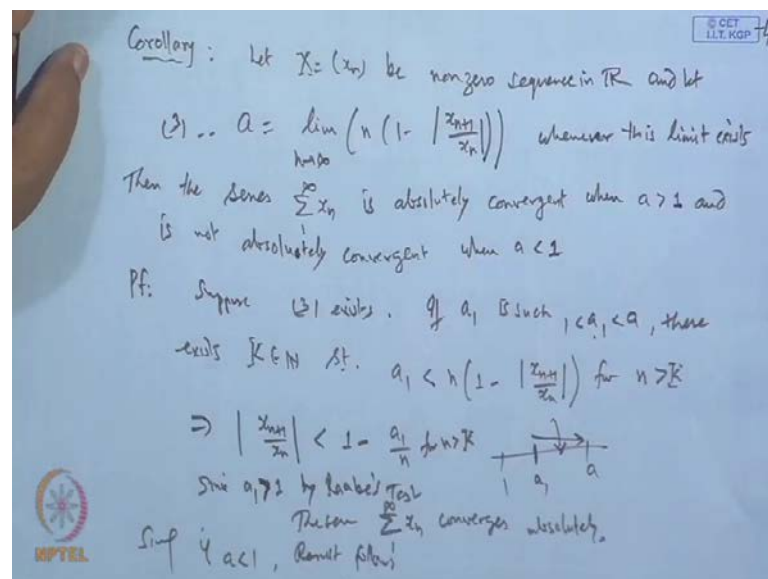 © CET
I.I.T. KGP
Corollary : Let X = (xn) be nonzero sequence in ℝ and let
(3) .. a = lim n→∞ (n (1 - |xn+1/xn|)) whenever this limit exists
Then the series ∑_1^∞ xn is absolutely convergent when a > 1 and
is not absolutely convergent when a < 1
Pf: Suppose (3) exists. If a1 is such 1 < a1 < a, there
exists K ∈ N st. a1 < n (1 - |xn+1/xn|) for n > K
⇒ |xn+1/xn| < 1 - a1/n for n > K
1 a1 a
Since a1 > 1 by Raabe's Test
∑_1^∞ xn converges absolutely.
if a < 1, Result follows
NPTEL